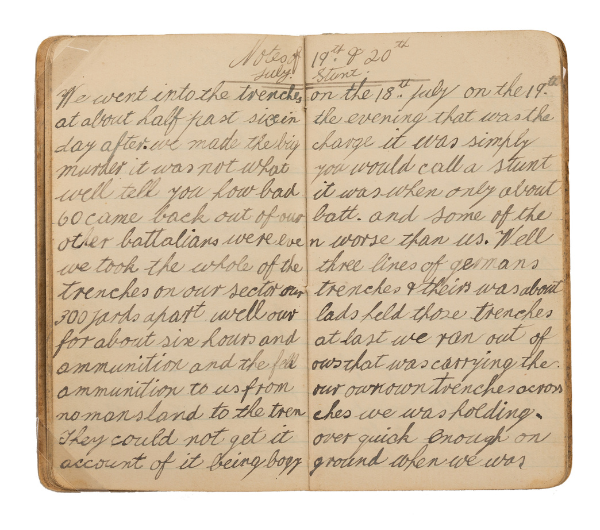 Notes of 19th & 20th
July. Stunt.
We went into the trenches on the 18th July on the 19th
at about half past six in the evening that was the
day after. we made the big charge it was simply
murder it was not what you would call a stunt
well tell you how bad it was when only about
60 came back out of our batt. and some of the
other battalians were even worse than us. Well
we took the whole of the three lines of germans
trenches on our sector our trenches & theirs was about
300 yards apart well our lads held those trenches
for about six hours and at last we ran out of
ammunition and the fellows that was carrying the
ammunition to us from our own own trenches across
no mans land to the trenches we was holding.
They could not get it over quick enough on
account of it being boggy ground when we was